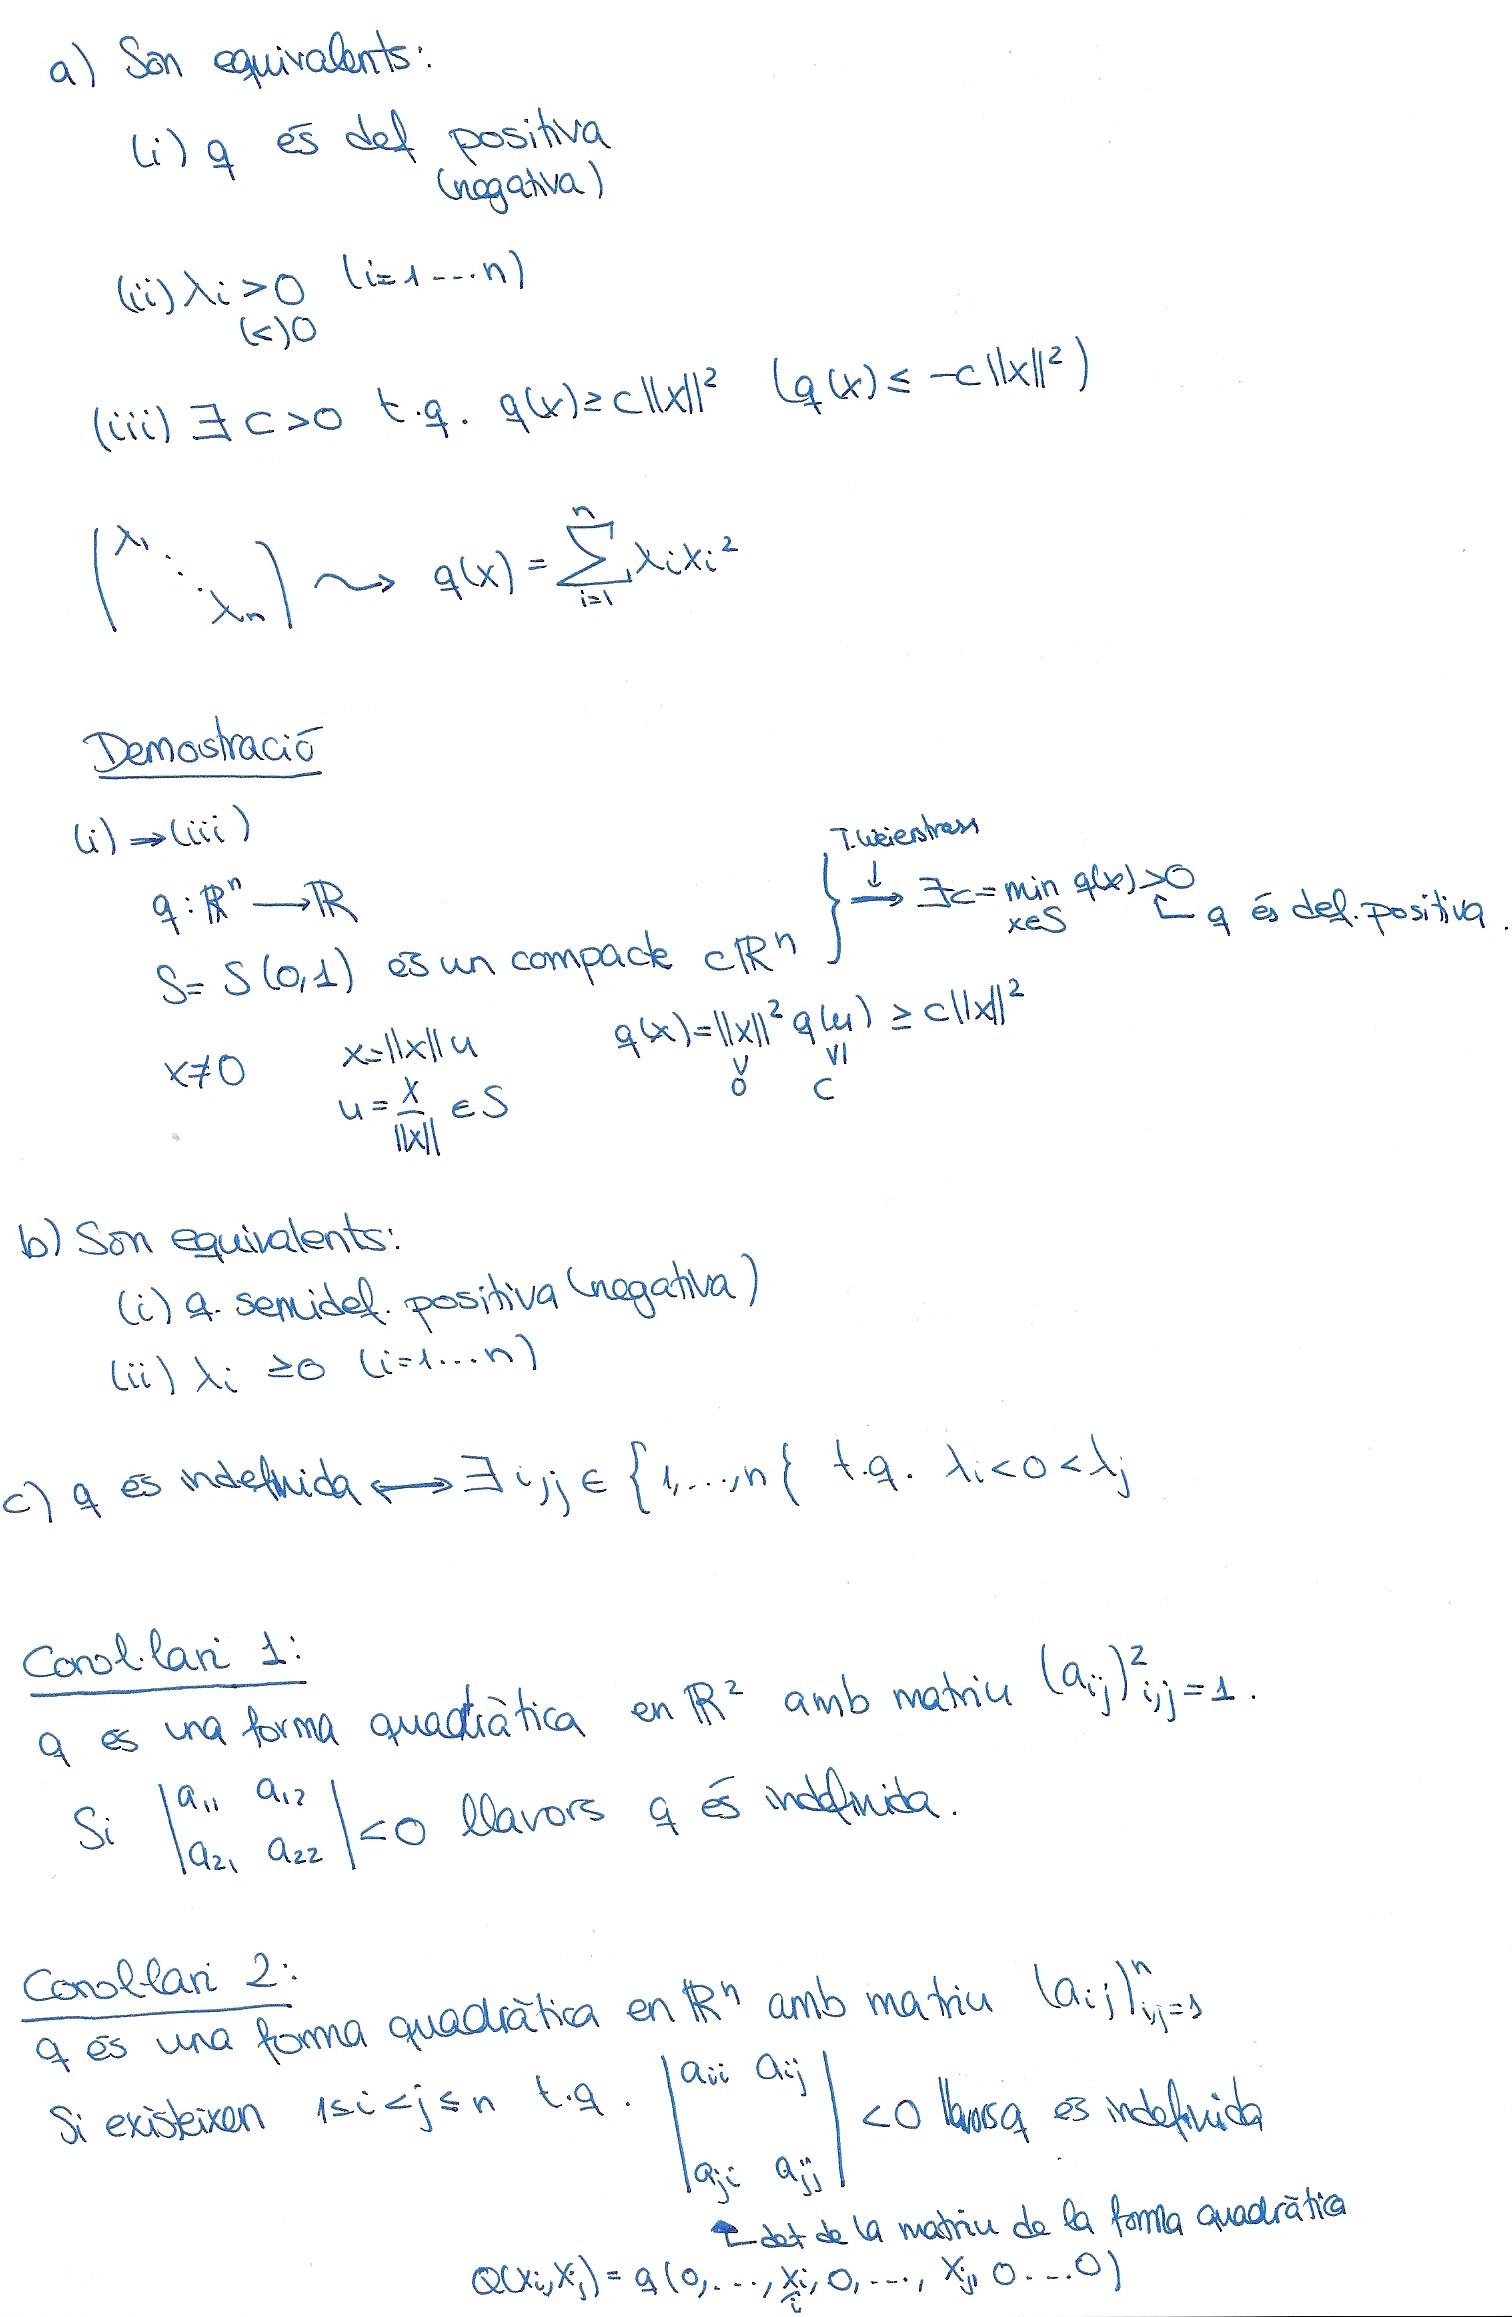 a) Són equivalents:
(i) q és def positiva
(negativa)
(ii) λi > 0 (i=1...n)
(<)0
(iii) ∃ c>0 t.q. q(x) ≥ c||x||² (q(x) ≤ -c||x||²)
(λ₁ ⋱ λn) ⇝ q(x) = ∑_{i=1}^{n} λi xi²
Demostració
(i) → (iii)
T. Weierstrass
q: ℝⁿ → ℝ } → ∃c = min_{x∈S} q(x) > 0
q és def. positiva.
S = S(0,1) és un compacte ⊂ ℝⁿ
x≠0 x=||x||u q(x) = ||x||² q(u) ≥ c||x||²
u = x/||x|| ∈ S
∨ 0 ∨| c
b) Són equivalents:
(i) q. semidef. positiva (negativa)
(ii) λi ≥ 0 (i=1...n)
c) q és indefinida ⟷ ∃ i,j ∈ {1,...,n{ t.q. λi < 0 < λj
Corol·lari 1:
q és una forma quadràtica en ℝ² amb matriu (aij)²i,j=1.
Si |a11 a12
a21 a22| < 0 llavors q és indefinida.
Corol·lari 2:
q és una forma quadràtica en ℝⁿ amb matriu (aij)ⁿi,j=1
Si existeixen 1≤i<j≤n t.q. |aii aij
aji ajj| < 0 llavors q és indefinida
det de la matriu de la forma quadràtica
Q(xi,xj) = q(0,...,xi,0,...,xj,0...0)
i